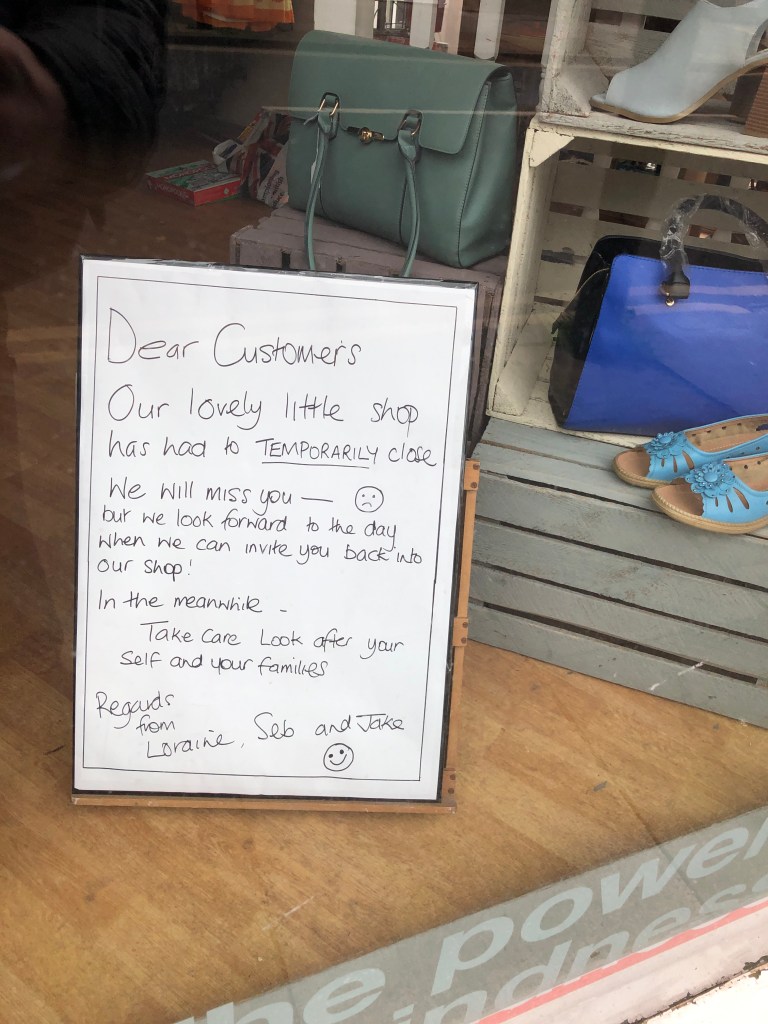 Dear Customers
Our lovely little shop
has had to TEMPORARILY close
We will miss you — ☹
but we look forward to the day
when we can invite you back into
our shop!
In the meanwhile -
Take Care Look after your
self and your families
Regards
from
Loraine, Seb and Jake
☺
he power
indness